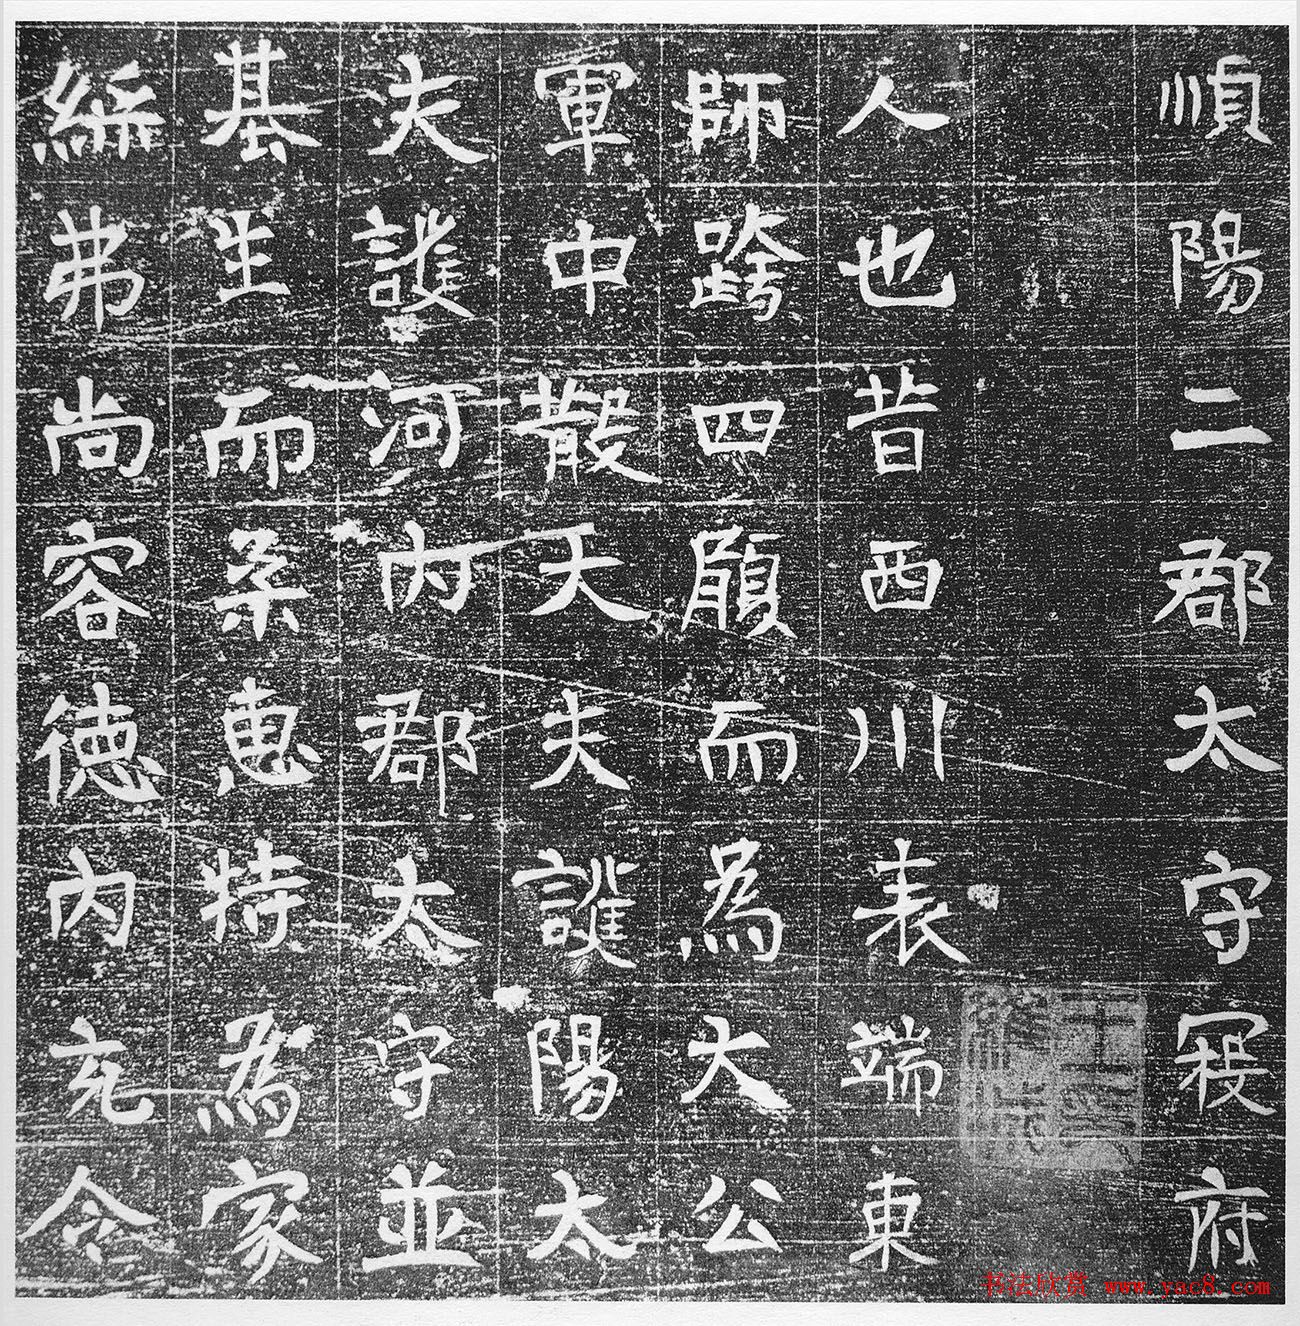 順陽二郡太守寇府
人也昔西川表端東
師跨四履而為大公
軍中散大夫護陽太
夫護河內郡太守並
基生而柔惠特為家
弗尚容德內充
书法欣赏 www.yac8.com